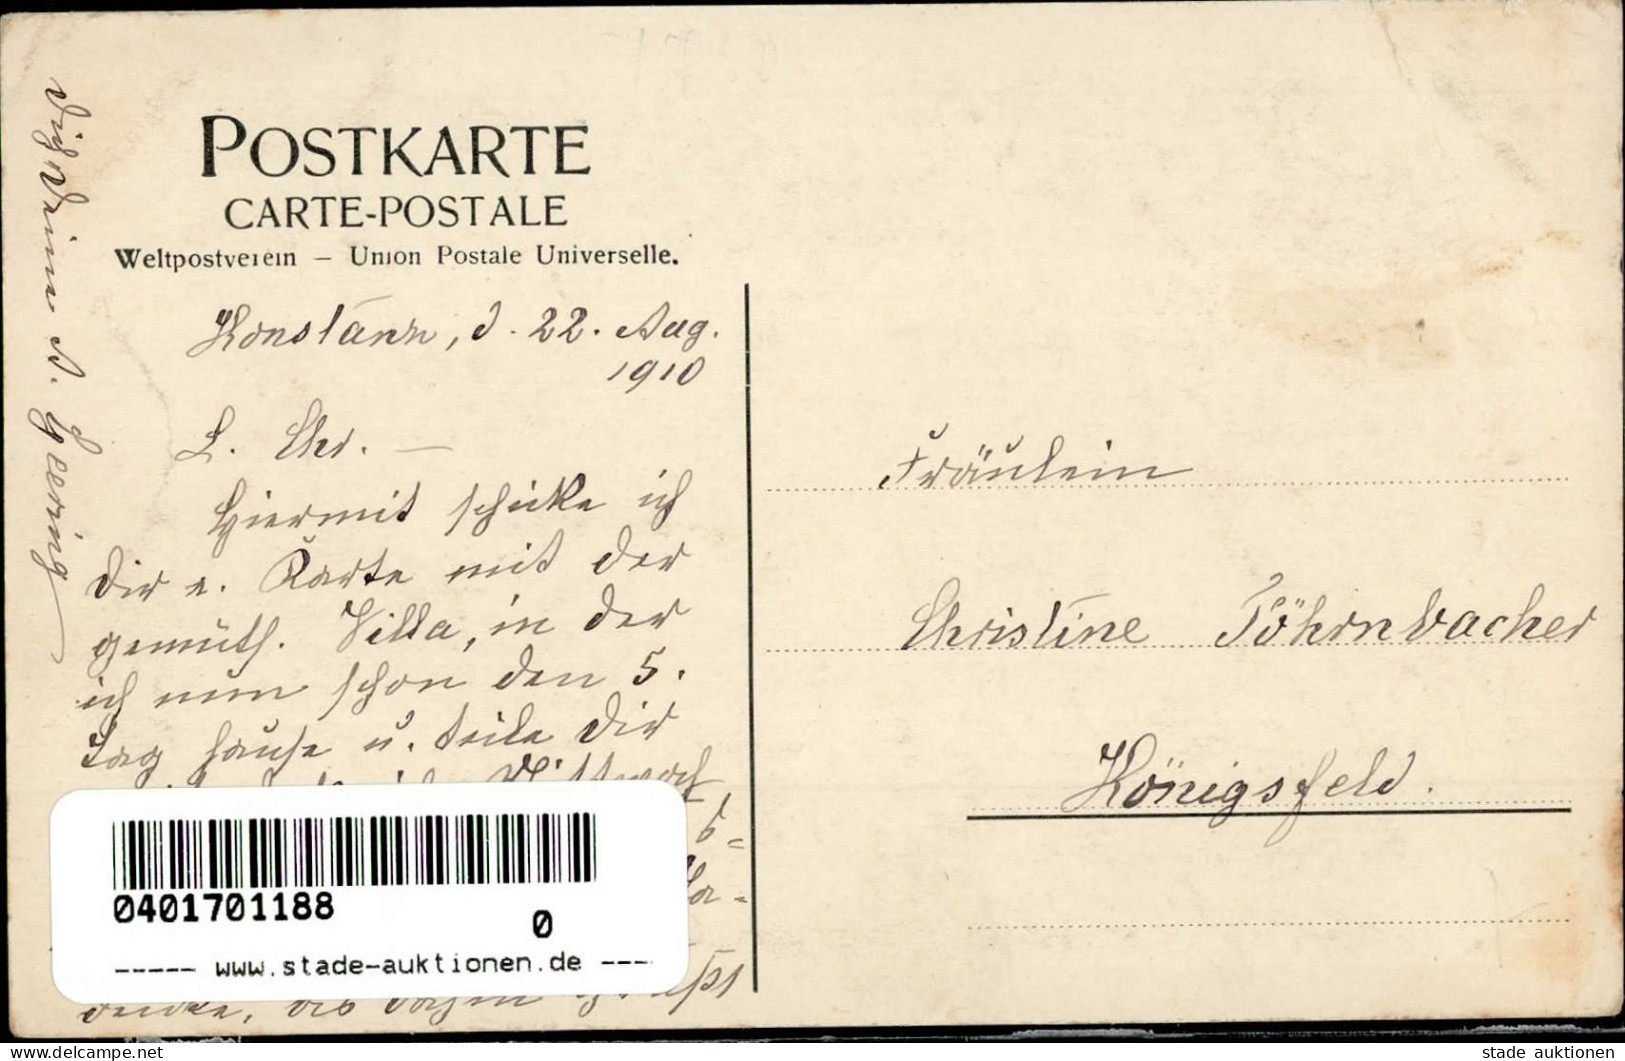 POSTKARTE
CARTE-POSTALE
Weltpostverein – Union Postale Universelle.
Konstanz, d. 22. Aug.
1910
L. Chr. —
Hiermit schicke ich
Dir e. Karte mit der
gemüth. Villa, in der
ich nun schon den 5.
Tag hause u. teile Dir
Mittwoch
denke, bis dahin grüßt
Dich Deine A. Hcering
Fräulein
Christine Föhrnbacher
Königsfeld.
0401701188
0
----- www.stade-auktionen.de ----
www.delcampe.net
stade auktionen